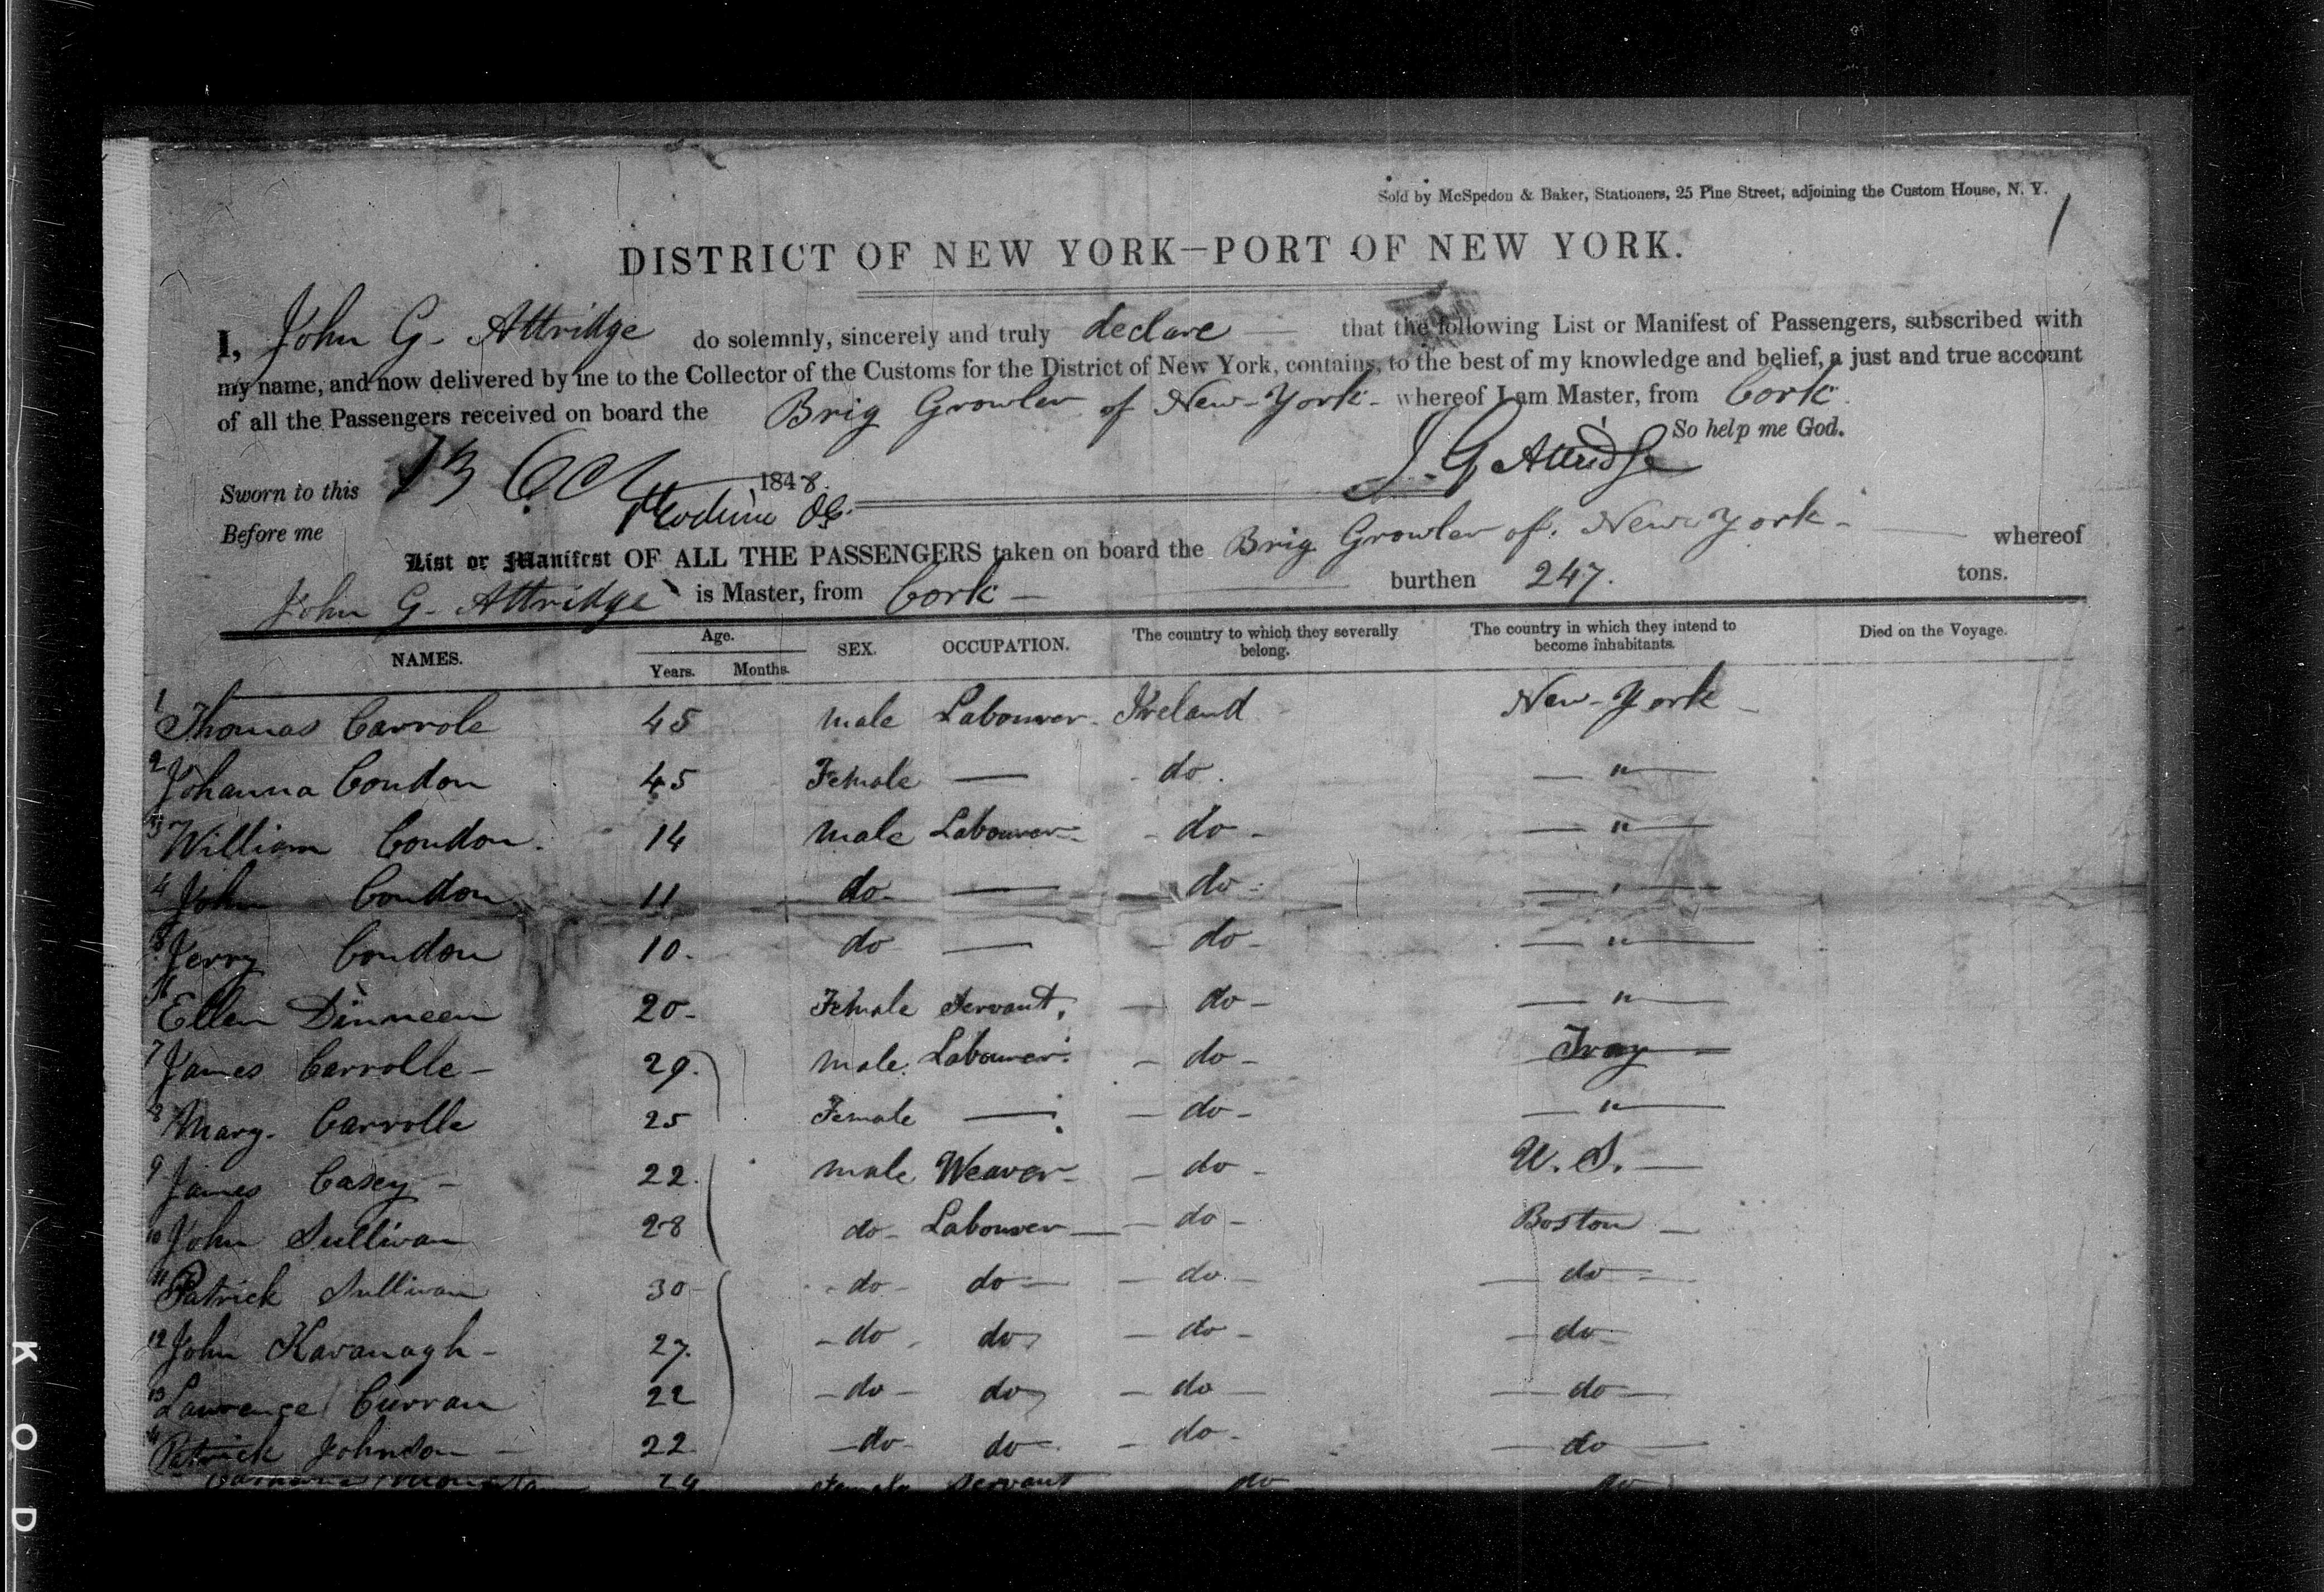 Sold by McSpedon & Baker, Stationers, 25 Pine Street, adjoining the Custom House, N. Y.
1
DISTRICT OF NEW YORK—PORT OF NEW YORK.
I, John G. Attridge do solemnly, sincerely and truly declare that the following List or Manifest of Passengers, subscribed with
my name, and now delivered by me to the Collector of the Customs for the District of New York, contains, to the best of my knowledge and belief, a just and true account
of all the Passengers received on board the Brig Growler of New-York - whereof I am Master, from Cork.
So help me God.
J. G Attridge
Sworn to this 13 Oct 1848.
Before me
List or Manifest OF ALL THE PASSENGERS taken on board the Brig Growler of New York - whereof
John G. Attridge is Master, from Cork - burthen 247. tons.
NAMES. Age. Years. Months. SEX. OCCUPATION. The country to which they severally belong. The country in which they intend to become inhabitants. Died on the Voyage.
1 Thomas Carrole 45 male Labourer - Ireland New-York -
2 Johanna Condon 45 Female — do. — " —
3 William Condon. 14 male Labourer - do - — " —
4 John Condon 11 do - — do - — " —
5 Jerry Condon 10. do — - do - — " —
6 Ellen Dinneen 20 - Female Servant, - do - — " —
7 James Carrolle - 29. male. Labourer. - do - Troy —
8 Mary. Carrolle 25 Female — - do - — " —
9 James Casey - 22. male Weaver - - do - U. S. —
10 John Sullivan 28 do - Labourer — - do - Boston —
11 Patrick Sullivan 30 - do - do — - do — — do —
12 John Kavanagh - 27. - do - do - do - — do -
13 Lawrence Curran 22 - do - do - do — — do —
14 Patrick Johnson — 22 - do - do - - do - — do —
24 Female Servant do do
KOD